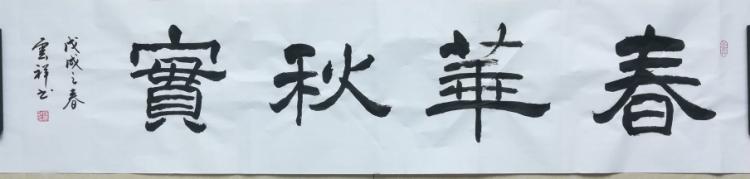 春華秋實
戊戌之春
雲祥书